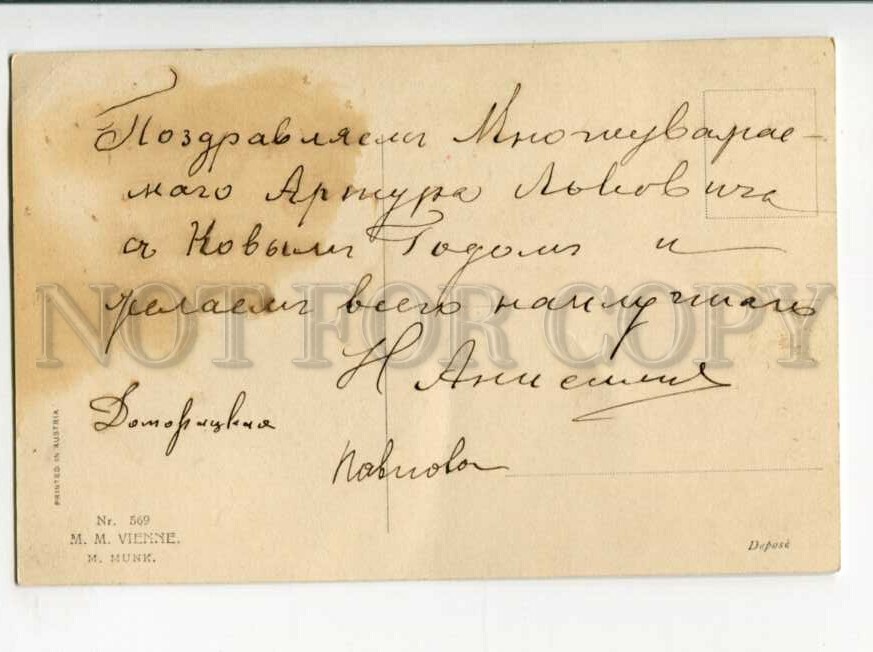 Поздравляемъ Многоуважае-
маго Артура Львовича
съ Новымъ Годомъ и
желаемъ всего наилучшаго
Н Анисимова
Павлова
NOT FOR COPY
PRINTED IN AUSTRIA
Nr. 569
M. M. VIENNE.
M. MUNK.
Déposé